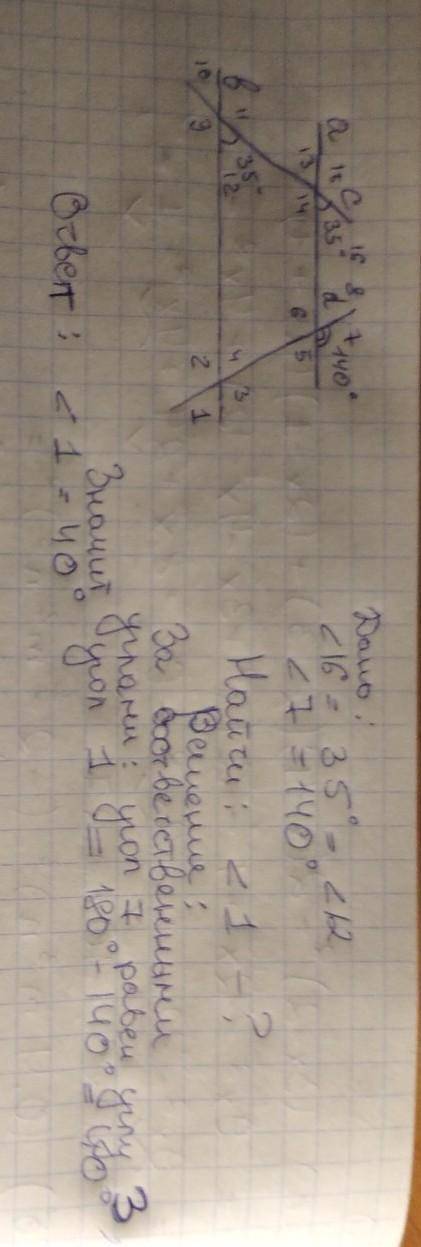 a 13 16 c 35° 15 8 d 7 140°
14 6 5
b 11 35°
10 9 12 4 3
2 1
Дано:
<16 = 35° = <12
<7 = 140°
Найти: <1 - ?
Решение:
За соответственными
углами: угол 7 равен углу 3,
Значит угол 1 = 180° - 140° = 40°
Ответ: <1 = 40°